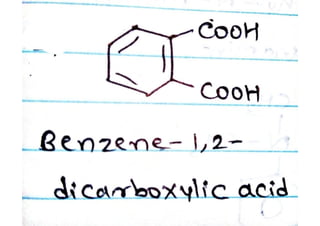 COOH
COOH
Benzene-1,2-
dicarboxylic acid